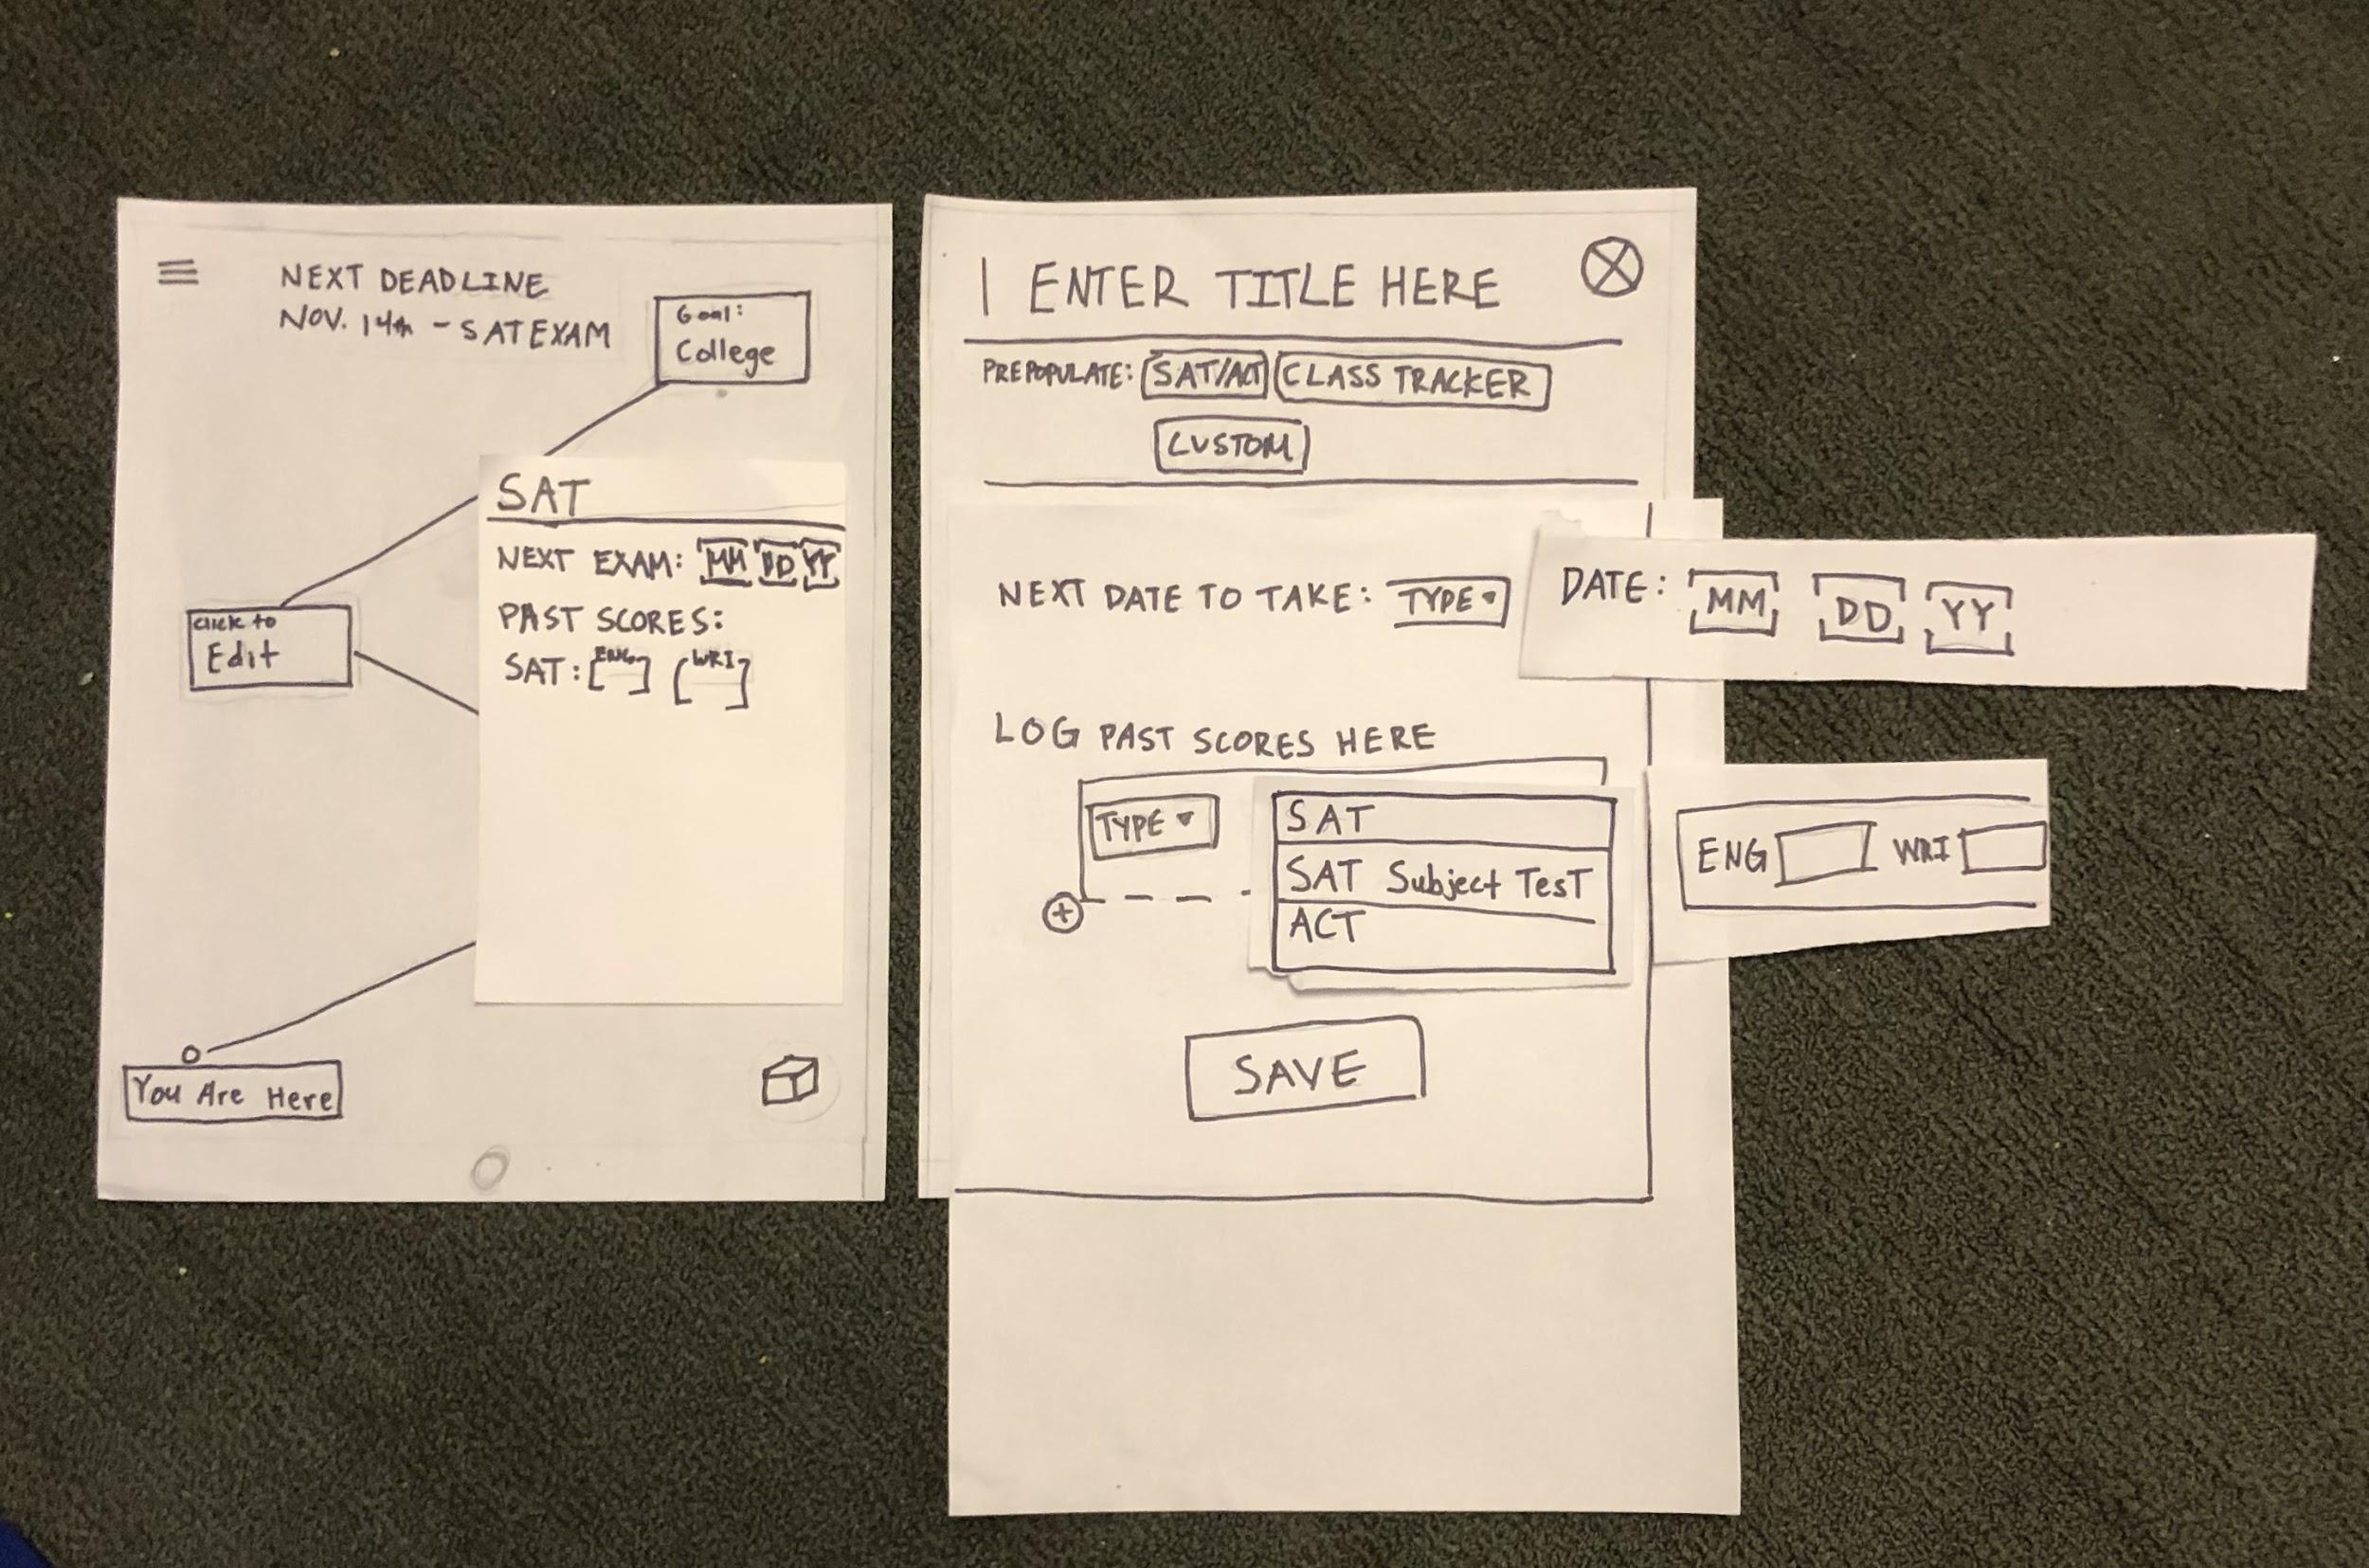 NEXT DEADLINE
NOV. 14th - SAT EXAM
Goal:
College
SAT
NEXT EXAM: MM DD YY
PAST SCORES:
SAT: ENG WRI
Click to
Edit
You Are Here
ENTER TITLE HERE
PREPOPULATE: SAT/ACT CLASS TRACKER
CUSTOM
NEXT DATE TO TAKE: TYPE
DATE: MM DD YY
LOG PAST SCORES HERE
TYPE
SAT
SAT Subject Test
ACT
ENG WRI
SAVE